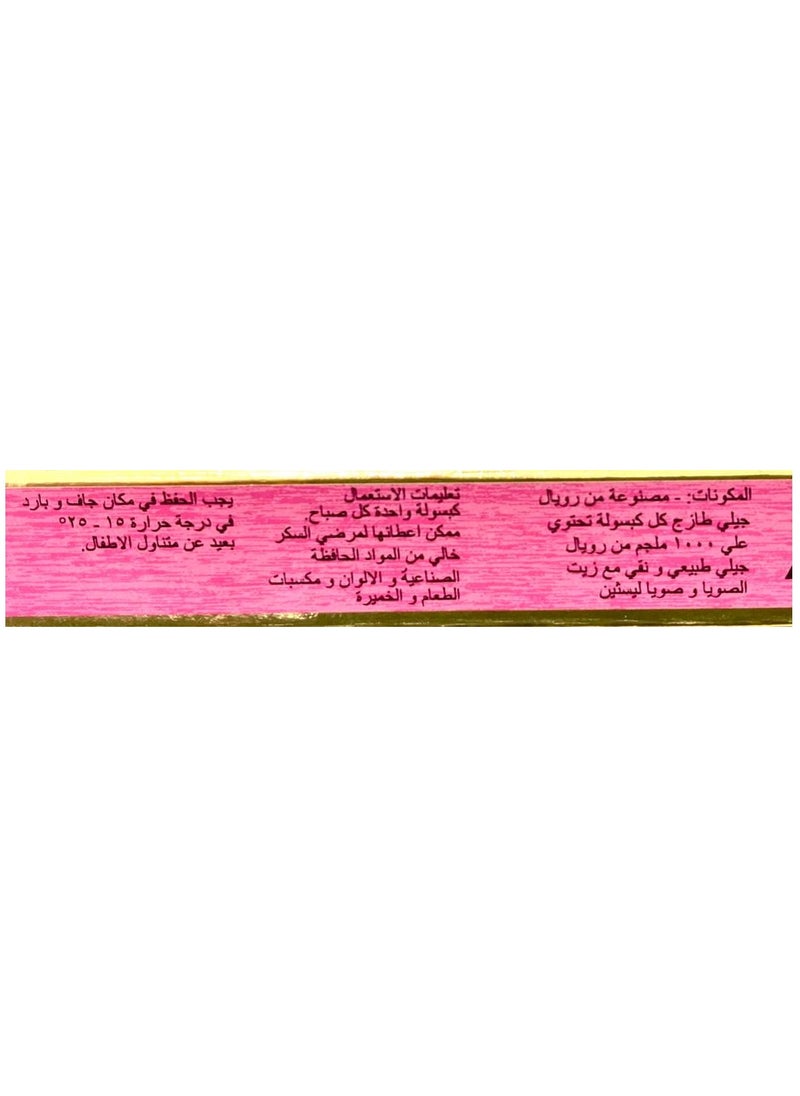 المكونات: - مصنوعة من رويال
جيلي طازج كل كبسولة تحتوي
علي ١٠٠٠ ملجم من رويال
جيلي طبيعي و نقي مع زيت
الصويا و صويا ليستين
تعليمات الاستعمال
كبسولة واحدة كل صباح.
ممكن اعطائها لمرضي السكر
خالي من المواد الحافظة
الصناعية و الالوان و مكسبات
الطعام و الخميرة
يجب الحفظ في مكان جاف و بارد
في درجة حرارة ١٥ - ٢٥°
بعيد عن متناول الاطفال.